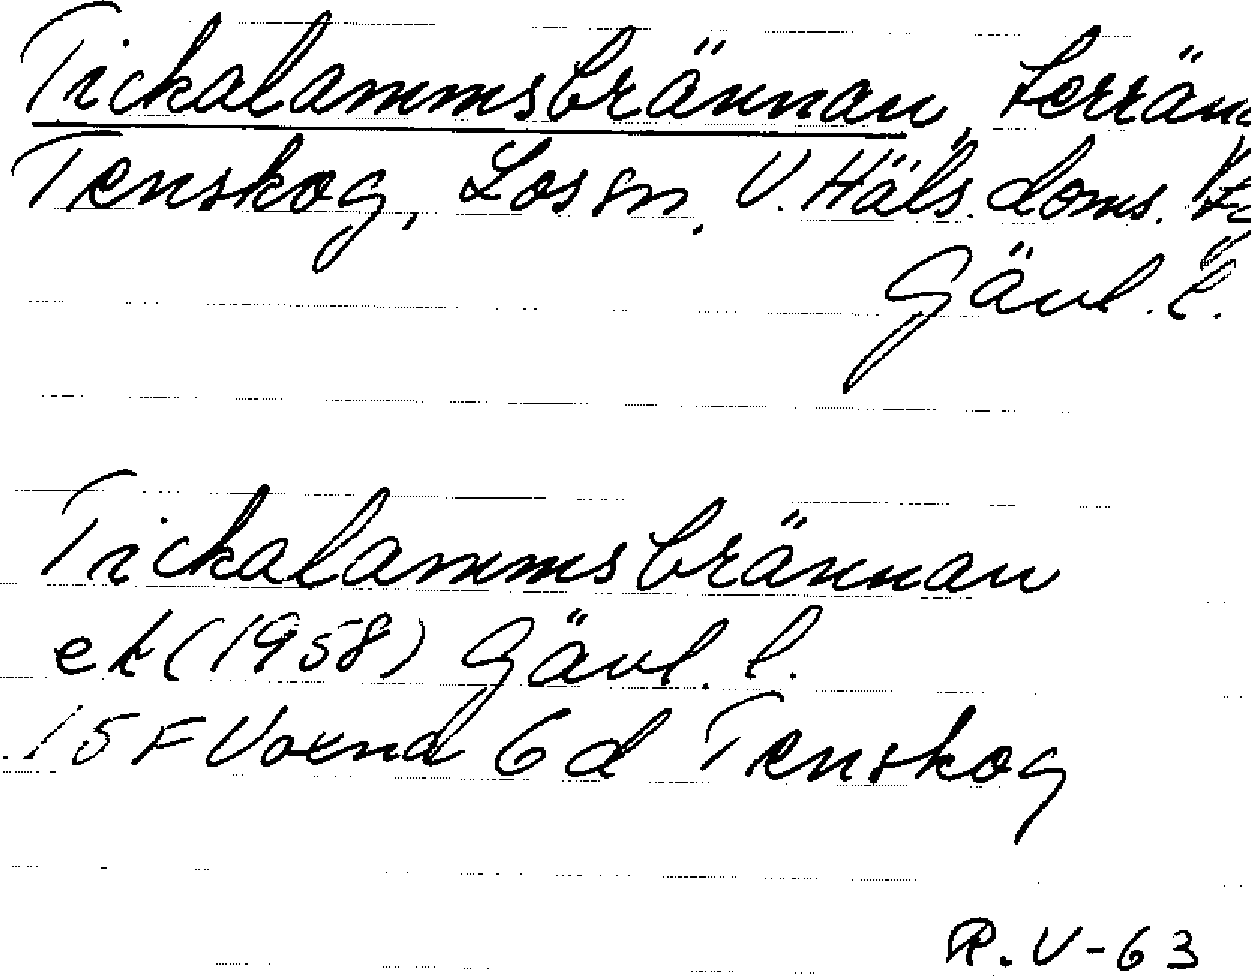 Tickalammsbrännan, terräng
Tenskog, Los sn, V. Häls. doms.
Gävl. l.
Tickalammsbrännan
ek (1958) Gävl. l.
15 F Voxna 6 d Tenskog
R.V-63